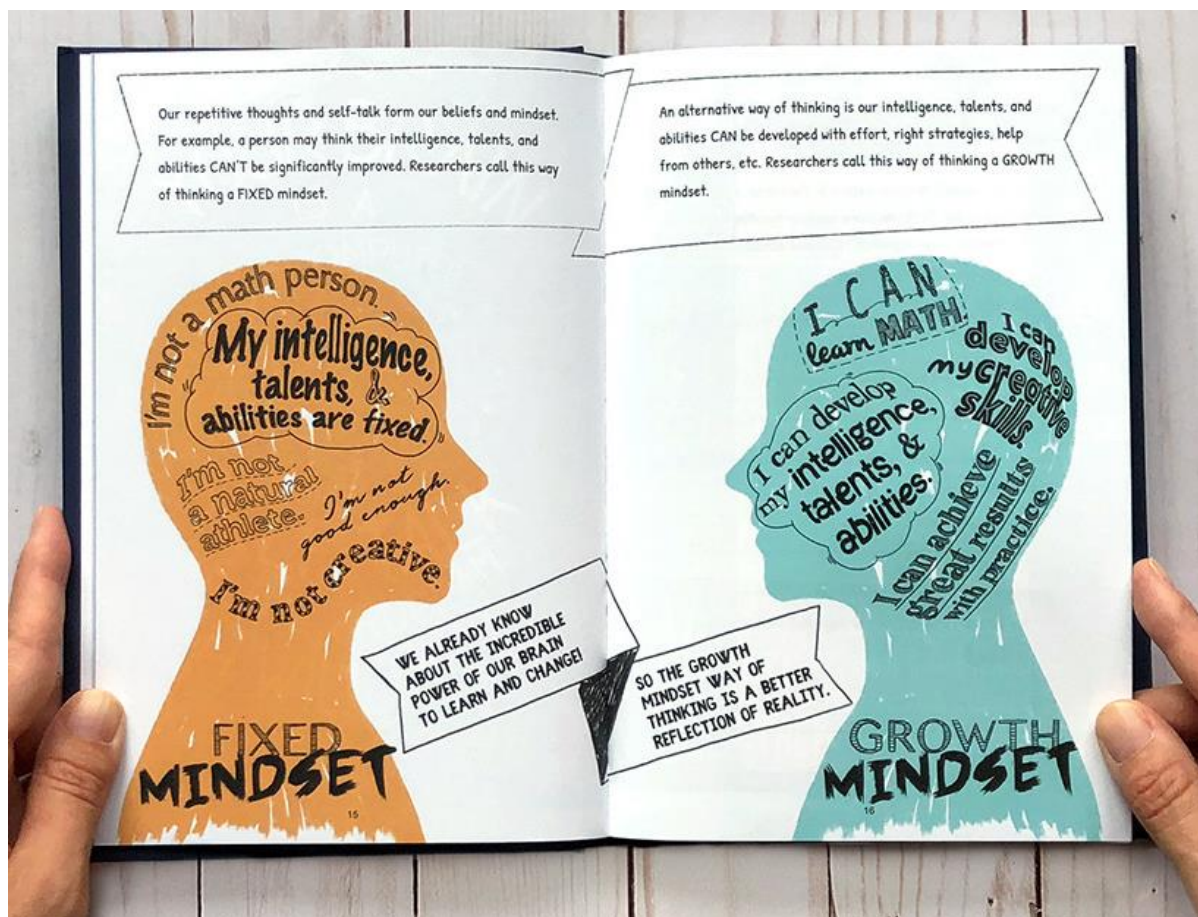 Our repetitive thoughts and self-talk form our beliefs and mindset.
For example, a person may think their intelligence, talents, and
abilities CAN'T be significantly improved. Researchers call this way
of thinking a FIXED mindset.
I'm not a math person.
My intelligence,
talents, &
abilities are fixed.
I'm not
a natural
athlete.
I'm not
good enough.
I'm not creative.
WE ALREADY KNOW
ABOUT THE INCREDIBLE
POWER OF OUR BRAIN
TO LEARN AND CHANGE!
FIXED
MINDSET
15
An alternative way of thinking is our intelligence, talents, and
abilities CAN be developed with effort, right strategies, help
from others, etc. Researchers call this way of thinking a GROWTH
mindset.
I CAN
learn MATH.
I can
develop
my creative
skills.
I can develop
my intelligence,
talents, &
abilities.
I can achieve
great results
with practice.
SO THE GROWTH
MINDSET WAY OF
THINKING IS A BETTER
REFLECTION OF REALITY.
GROWTH
MINDSET
16